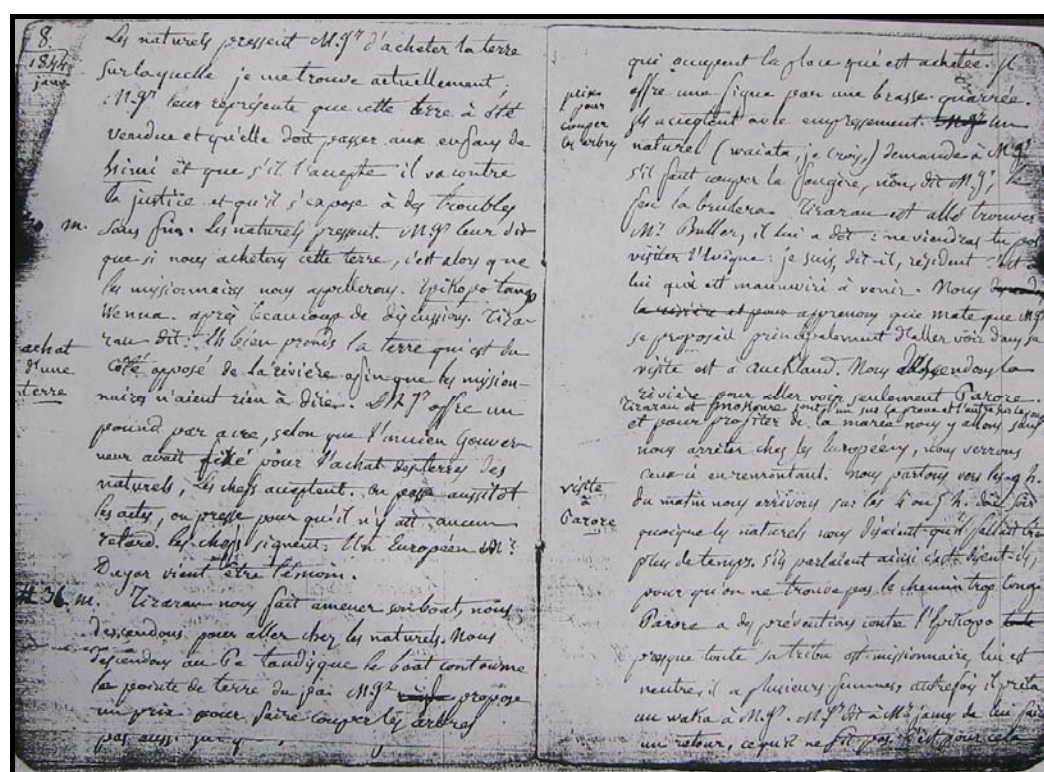 8.
1844
janv
Les naturels pressent M.gr d'acheter la terre
sur laquelle je me trouve actuellement,
M.gr leur représente que cette terre a été
vendue et qu'elle doit passer aux enfans de
et que s'il l'accepte il va contre
la justice et qu'il s'expose à des troubles
m.
sans fin. Les naturels pressent. M.gr leur dit
que si nous achetons cette terre, c'est alors que
les missionnaires nous appelleront. Epikopo tango
Wenua. après beaucoup de discussions. Tira-
rau dit: Eh bien prends la terre qui est du
achat
d'une
terre
côté opposé de la rivière afin que les mission-
naires n'aient rien à dire. M.gr offre un
pound par acre, selon que l'ancien Gouver-
neur avait fixé pour l'achat des terres des
naturels, les chefs acceptent. on passe aussitôt
les actes, on presse pour qu'il n'y ait aucun
retard. les chefs signent. Un Européen M.r
vient être témoin.
36. m.
Tirarau nous fait amener son boat, nous
descendons pour aller chez les naturels. Nous
descendons au Pa tandisque le boat contourne
la pointe de terre du pa. M.gr propose
un prix pour faire couper les arbres
pas aussi
qui occupent la place qui est achetée. Il
prix
pour
couper
les arbres
offre une figue par une brasse quarrée.
Ils acceptent avec empressement. Un
naturel (waiata, je crois,) demande à M.gr
s'il faut couper la fougère, non, dit M.gr, le
feu la brulera. Tirarau est allé trouver
M.r Buller, il lui a dit : ne viendras tu pas
visiter l'évêque : je suis, dit-il, résident c'est
lui qui est manuwiri à venir. Nous
la rivière et pour apprenons que mate que M.gr
se proposait principalement d'aller voir dans sa
visite est à auckland. Nous descendons la
rivière pour aller voir seulement Parore.
Tirarau et sont l'un sur la proue et l'autre
et pour profiter de la marée nous y allons sans
nous arrêter chez les Européens, nous verrons
ceux-ci en remontant. Nous partons vers les h.
visite
à
Parore
du matin nous arrivons sur les 4 ou 5 h. du soir
quoique les naturels nous disaient qu'il fallait bien
plus de temps. S'ils parlaient ainsi c'est, disent-ils,
pour qu'on ne trouve pas le chemin trop long.
Parore a des préventions contre l'Epikopo
presque toute sa tribu est missionnaire, lui est
neutre, il a plusieurs femmes, autrefois il prêta
un waka à M.gr. M.gr dit à M.r james de lui faire
un retour, ce qui ne fit pas. C'est pour cela